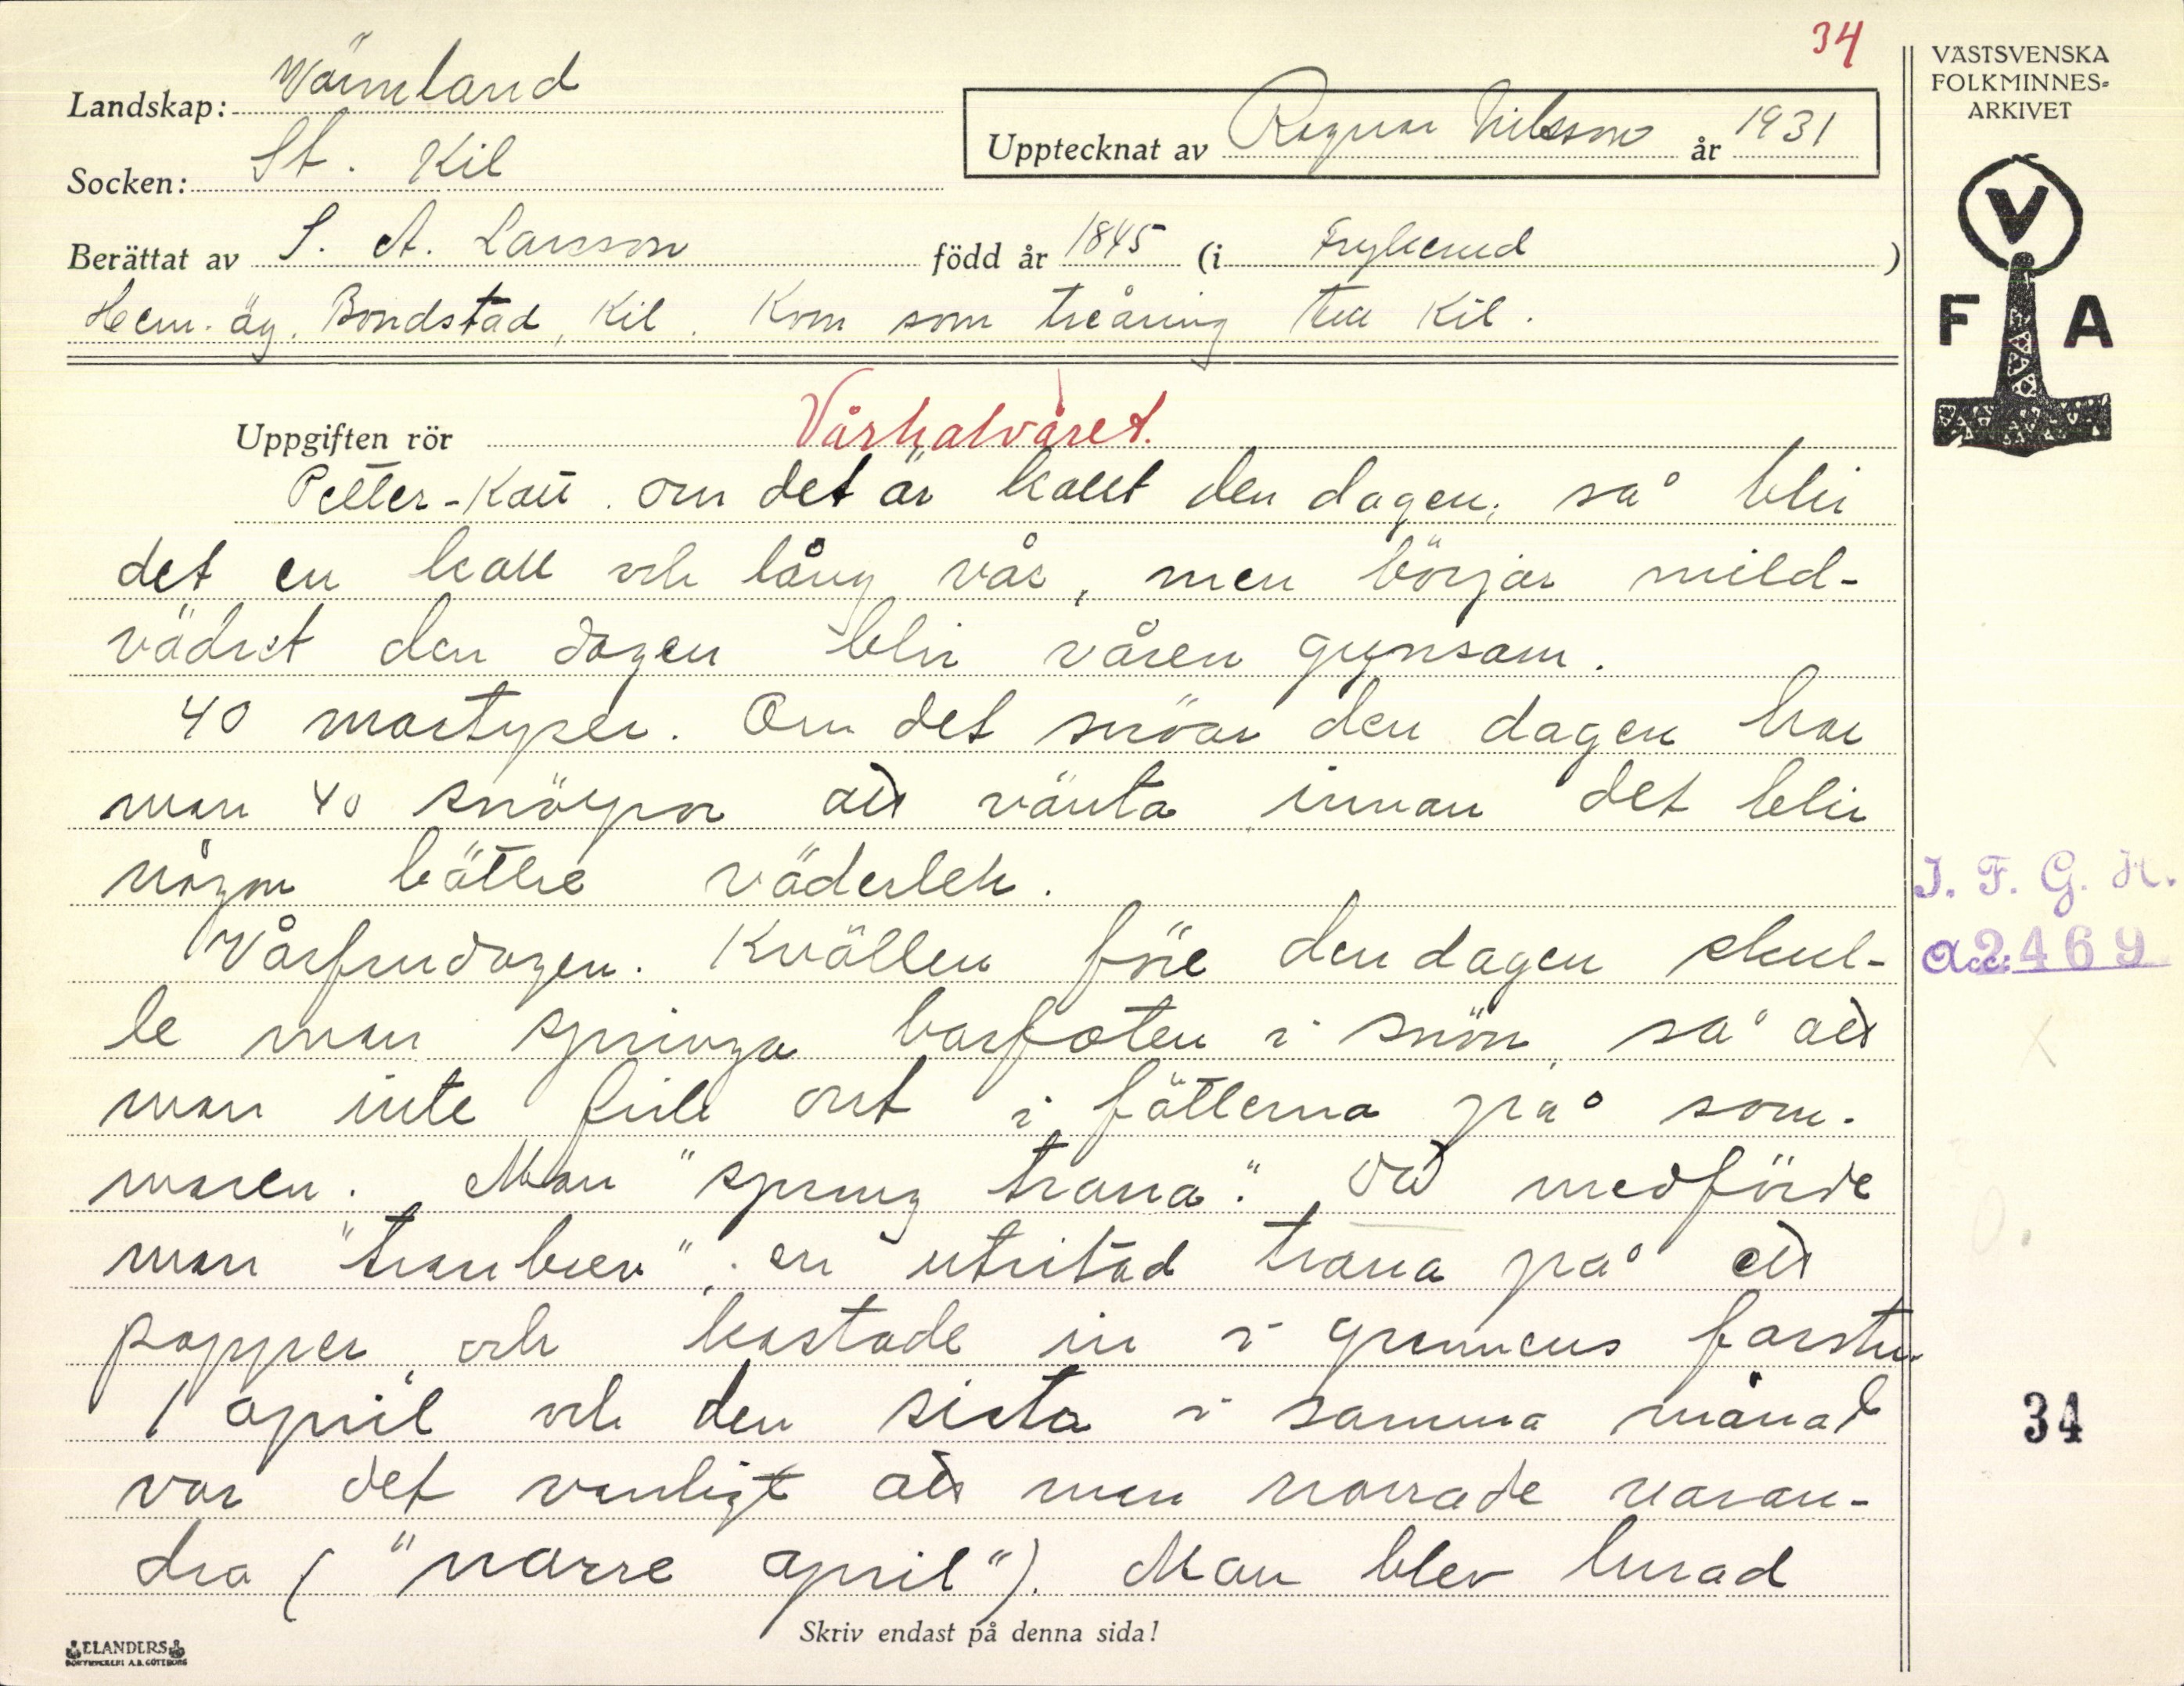 34
Landskap: Värmland
Socken: St. Kil
Upptecknat av Ragnar Nilsson år 1931
Berättat av S. A. Larsson född år 1845 (i Frykerud)
Hem. äg. Bondstad, Kil. Kom som treåring till Kil.
VÄSTSVENSKA
FOLKMINNES-
ARKIVET
V
F A
Uppgiften rör Vårhalvåret.
Petter-Katt. Om det är kallt den dagen, så blir
det en kall och lång vår, men börjar mild-
vädret den dagen blir våren gynsam.
40 martyrer. Om det snöar den dagen har
man 40 snöyror att vänta innan det blir
någon bättre väderlek.
Vårfrudagen. Kvällen före den dagen skul-
le man springa barfoten i snön, så att
man inte fick ont i fötterna på som-
maren. Man "sprung trana". Då medförde
man "tranbrev", en utritad trana på ett
papper och kastade in i grannens farstu.
1 april och den sista i samma månad
var det vanligt att man narrade varan-
dra ("narre april"). Man blev lurad
I. F. G. H.
Acc: 2469
34
Skriv endast på denna sida!
ELANDERS
BOKTRYCKERI A.B. GÖTEBORG